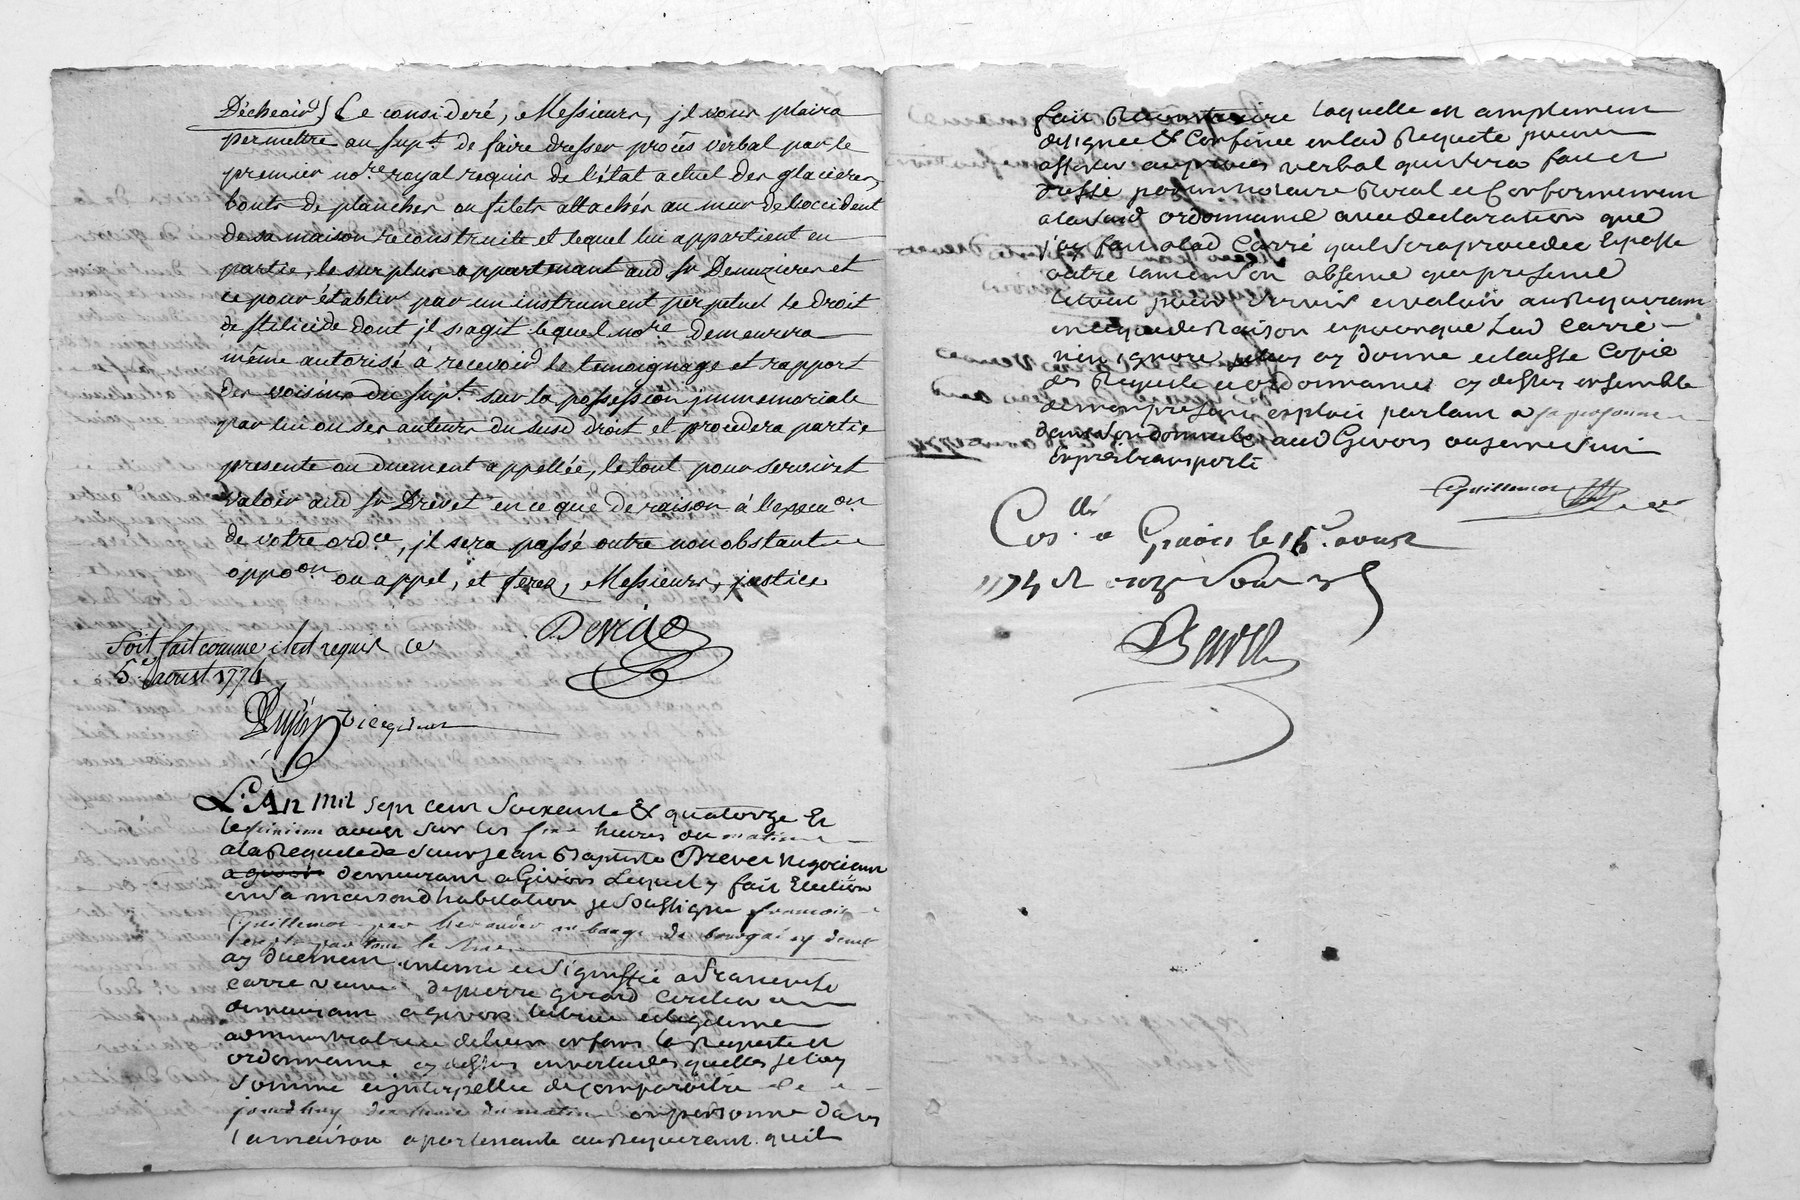 Décheoir) Ce consideré, Messieurs, jl vous plaira
permettre au sup.t de faire dresser procès verbal par le
premier no.re royal requis de l'état actuel des glacieres,
bouts de planches ou filets attachés au mur de l'occident
de sa maison reconstruite et lequel lui appartient en
partie, le surplus appartenant aud. Sr Denuzieres et
ce pour établir par un instrument perpetuel le droit
de stilicide dont jl s'agit lequel no.re demeurera
même autorisé à recevoir le temoignage et rapport
des voisins du sup.t sur la possession jmmemoriale
par lui ou ses auteurs du susd. droit et procedera partie
presente ou duement appellée, le tout pour servir et
valoir aud. Sr Drevet en ce que de raison à l'exécu.on
de votre ord.ce, jl sera passé outre nonobstant
oppo.on ou appel, et ferez, Messieurs, justice
Soit fait comme il est requis ce
5e aoust 1774
L'An Mil sept cent Soixante & quatorze Et
le aoust sur les heures du matin
ala Requete de Sieur Jean Baptiste Drevet Negociant
a givors demeurant a Givors Lequel y fait Election
en sa maison d'habitation je soussigné francois
Guillemot
ay duement intimé et signiffié a francoise
carre veuve de pierre girard
demeurant a givors tutrice et legitime
administratrice de leurs enfans la Requete et
ordonnance cy dessus en vertu desquelles je l'ay
sommé et jnterpellée de comparoitre
jourdhuy du matin en personne dans
la maison apartenante au Requerant quil
fait Reconstruire laquelle est amplement
designée & Confinée en lad Requete pour
assister au proces verbal qui sera fait et
dressé par un notaire Royal et Conformement
a lad ordonnance avec declaration que
j'ay fait alad Carré quil sera procedée
outre tant en son absence que presence
le tout pour servir et valoir au Requerant
en ce que de Raison et pour que Lad Carré
n'en ignore je luy ay donné et laissé Copie
des Requete et ordonnance cy dessus ensemble
de mon present exploit parlant a sa personne
dans son domicile aud Givors ou je me suis
Expres transporté
Guillemot
Con.llé a Givors le 16e aoust
1774